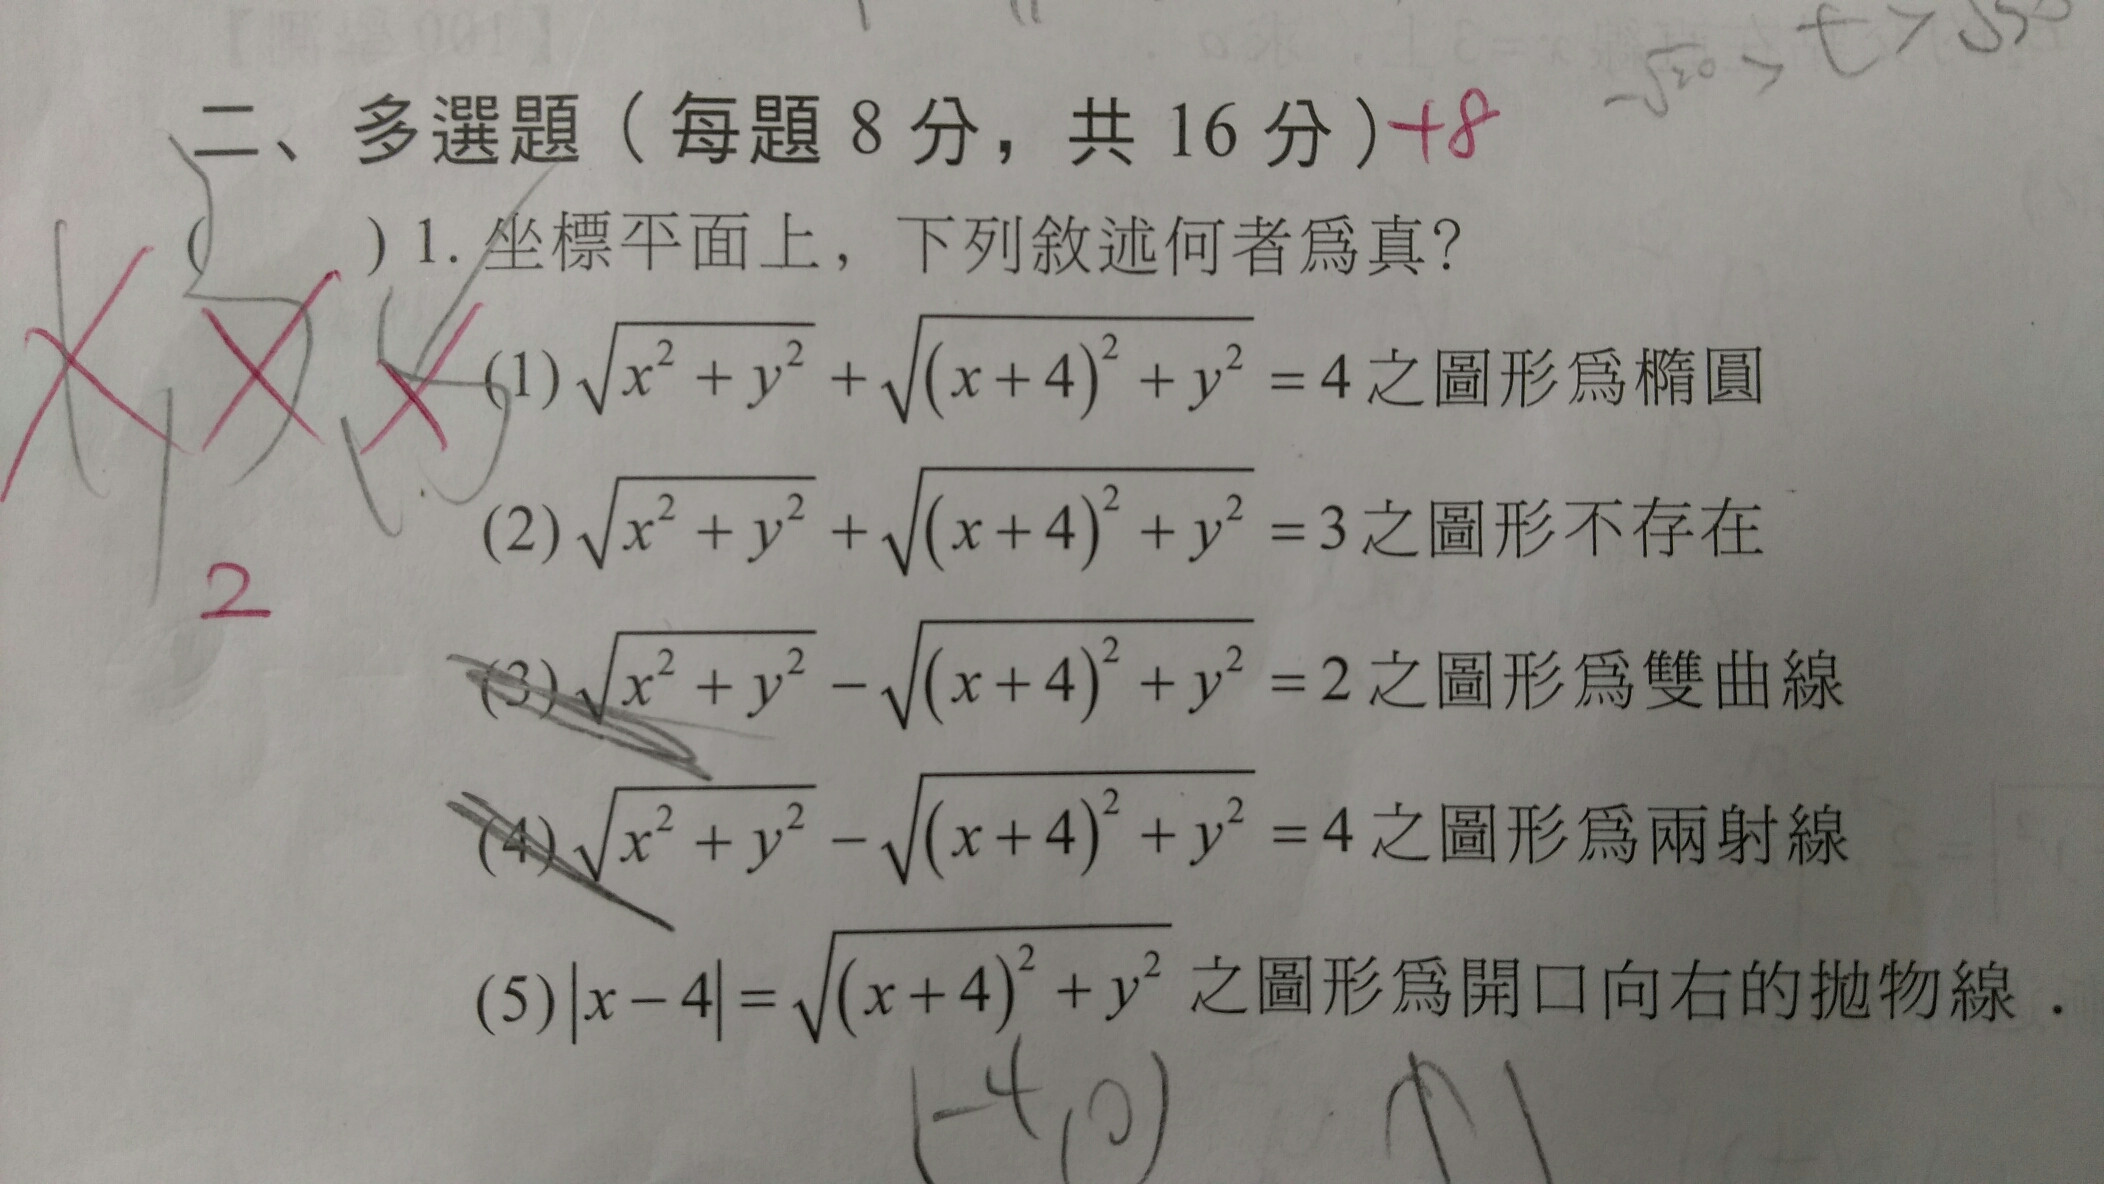 二、多選題（每題 8 分，共 16 分）+8
(　　) 1. 坐標平面上，下列敘述何者爲真？
(1) √(x² + y²) + √((x + 4)² + y²) = 4 之圖形爲橢圓
(2) √(x² + y²) + √((x + 4)² + y²) = 3 之圖形不存在
2
(3) √(x² + y²) − √((x + 4)² + y²) = 2 之圖形爲雙曲線
(4) √(x² + y²) − √((x + 4)² + y²) = 4 之圖形爲兩射線
(5) |x − 4| = √((x + 4)² + y²) 之圖形爲開口向右的拋物線．
(-4,0)